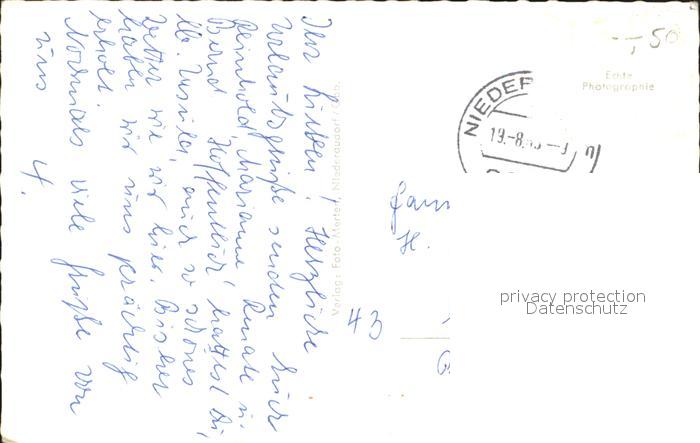 Ihr Lieben! Herzliche
Urlaubsgrüße senden Euch
Reinhold, Marianne, Renate u.
Bernd. Hoffentlich hattest Du,
lb. Ursula, auch so schönes
Wetter wie wir hier. Bisher
haben wir uns prächtig
erholt.
Nochmals viele Grüße von
uns 4.
Verlag: Foto
-,50
Echte
Photographie
NIEDER
19.-8.
Fam
H.
43
privacy protection
Datenschutz